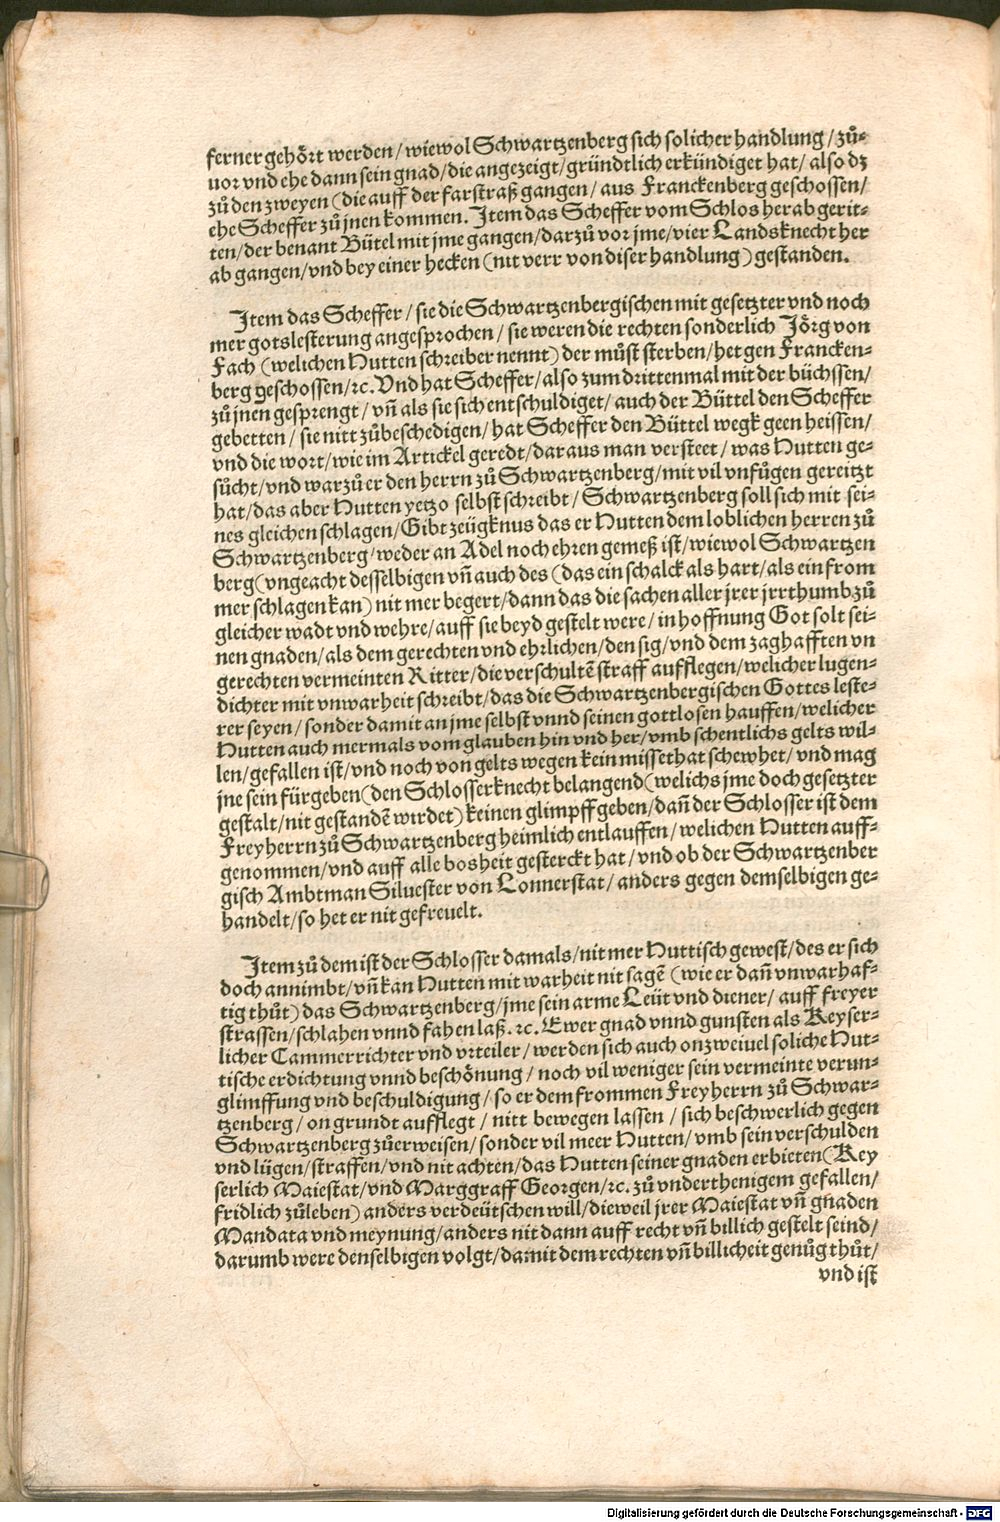 ferner gehoͤrt werden / wiewol Schwartzenberg sich solicher handlung / zuͦ-
uor vnd ehe dann sein gnad / die angezeigt / gründtlich erkündiget hat / also dz
zuͦ den zweyen (die auff der farstraß gangen / aus Franckenberg geschossen /
ehe Scheffer zuͦ jnen kommen. Item das Scheffer vom Schlos herab gerit-
ten / der benant Bütel mit jme gangen / darzuͦ vor jme / vier Landsknecht her
ab gangen / vnd bey einer hecken (nit verr von diser handlung) gestanden.
Item das Scheffer / sie die Schwartzenbergischen mit gesetzter vnd noch
mer gotslesterung angesprochen / sie weren die rechten sonderlich Joͤrg von
Fach (welichen Hutten schreiber nennt) der muͤst sterben / het gen Francken-
berg geschossen / ꝛc. Vnd hat Scheffer / also zum drittenmal mit der büchssen /
zuͦ jnen gesprengt / vn̄ als sie sich entschuldiget / auch der Büttel den Scheffer
gebetten / sie nitt zuͦbeschedigen / hat Scheffer den Büttel wegk geen heissen /
vnd die wort / wie im Artickel geredt / daraus man versteet / was Hutten ge-
suͦcht / vnd warzuͦ er den herrn zuͦ Schwartzenberg / mit vil vnfuͦgen gereitzt
hat / das aber Hutten yetzo selbst schreibt / Schwartzenberg soll sich mit sei-
nes gleichen schlagen / Gibt zeügknus das er Hutten dem loblichen herren zuͦ
Schwartzenberg / weder an Adel noch ehren gemeß ist / wiewol Schwartzen
berg (vngeacht desselbigen vn̄ auch des (das ein schalck als hart / als ein from
mer schlagen kan) nit mer begert / dann das die sachen aller jrer jrrthumb zuͦ
gleicher wadt vnd wehre / auff sie beyd gestelt were / in hoffnung Got solt sei-
nen gnaden / als dem gerechten vnd ehrlichen / den sig / vnd dem zaghafften vn
gerechten vermeinten Ritter / die verschultē straff aufflegen / welicher lugen-
dichter mit vnwarheit schreibt / das die Schwartzenbergischen Gottes leste-
rer seyen / sonder damit an jme selbst vnnd seinen gottlosen hauffen / welicher
Hutten auch mermals vom glauben hin vnd her / vmb schentlichs gelts wil-
len / gefallen ist / vnd noch von gelts wegen kein missethat schewhet / vnd mag
jne sein fürgeben (den Schlosserknecht belangend (welichs jme doch gesetzter
gestalt / nit gestandē wirdet) keinen glimpff geben / dan̄ der Schlosser ist dem
Freyherrn zuͦ Schwartzenberg heimlich entlauffen / welichen Hutten auff-
genommen / vnd auff alle bosheit gesterckt hat / vnd ob der Schwartzenber
gisch Ambtman Siluester von Lonnerstat / anders gegen demselbigen ge-
handelt / so het er nit gefreuelt.
Item zuͦ dem ist der Schlosser damals / nit mer Huttisch gewest / des er sich
doch annimbt / vn̄ kan Hutten mit warheit nit sagē (wie er dan̄ vnwarhaf-
tig thuͦt) das Schwartzenberg / jme sein arme Leüt vnd diener / auff freyer
strassen / schlahen vnnd fahen laß. ꝛc. Ewer gnad vnnd gunsten als Keyser-
licher Cammerrichter vnd vrteiler / werden sich auch onzweiuel soliche Hut-
tische erdichtung vnnd beschoͤnung / noch vil weniger sein vermeinte verun-
glimffung vnd beschuldigung / so er dem frommen Freyherrn zuͦ Schwar-
tzenberg / on grundt aufflegt / nitt bewegen lassen / sich beschwerlich gegen
Schwartzenberg zuͦerweisen / sonder vil meer Hutten / vmb sein verschulden
vnd lügen / straffen / vnd nit achten / das Hutten seiner gnaden erbieten (Key
serlich Maiestat / vnd Marggraff Georgen / ꝛc. zuͦ vnderthenigem gefallen /
fridlich zuͦleben) anders verdeütschen will / dieweil jrer Maiestat vn̄ gnaden
Mandata vnd meynung / anders nit dann auff recht vn̄ billich gestelt seind /
darumb were denselbigen volgt / damit dem rechten vn̄ billicheit genuͦg thuͦt /
vnd ist
Digitalisierung gefördert durch die Deutsche Forschungsgemeinschaft - DFG